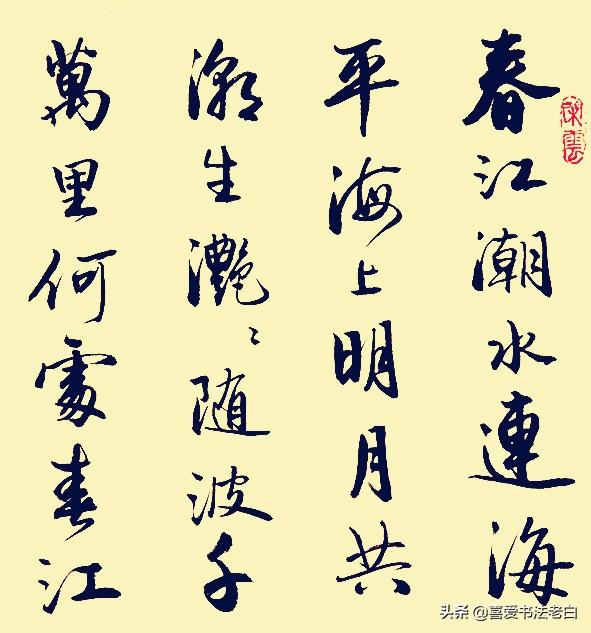 春江潮水連海
平海上明月共
潮生灧〻随波千
萬里何處春江
头条@喜爱书法老白